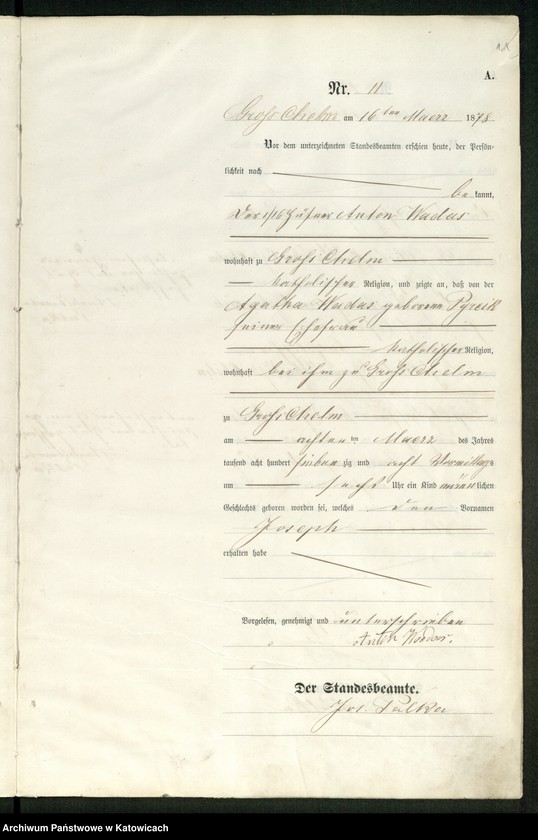 A.
Nr. 11
Gross Chelm am 16 ten Maerz 1878
Vor dem unterzeichneten Standesbeamten erschien heute, der Persön-
lichkeit nach
be kannt,
Der Anton Wadas
wohnhaft zu Gross Chelm
katholischer Religion, und zeigte an, daß von der
Agatha Wadas geborene Pyrcik
seiner Ehefrau
katholischer Religion,
wohnhaft bei ihm zu Gross Chelm
zu Gross Chelm
am achten ten Maerz des Jahres
tausend acht hundert sieben zig und acht Vormittags
um sechs Uhr ein Kind männlichen
Geschlechts geboren worden sei, welches den Vornamen
Joseph
erhalten habe
Vorgelesen, genehmigt und unterschrieben
Anton
Der Standesbeamte.
Jos.
Archiwum Państwowe w Katowicach